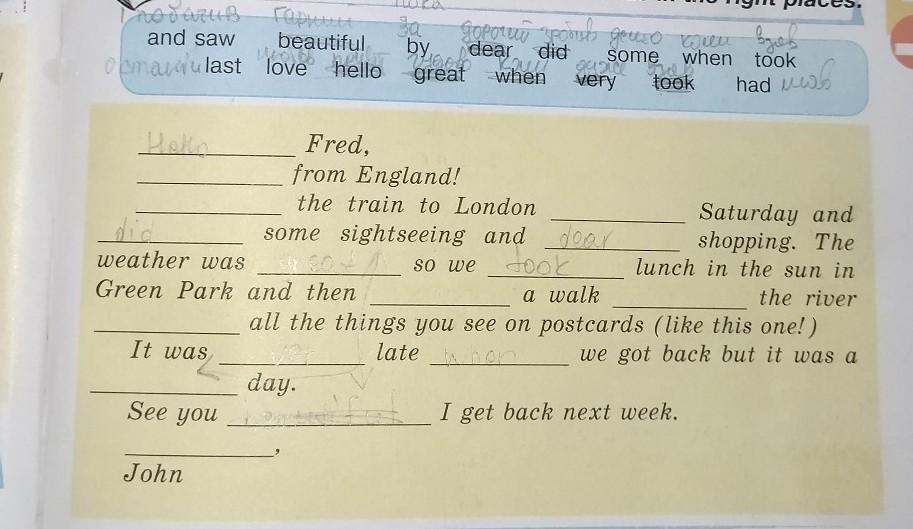 the right places.
і побачив гарний за дорогий зробив дещо коли взяв
and saw beautiful by dear did some when took
last love hello great when very took had мав
Hello Fred,
from England!
the train to London Saturday and
did some sightseeing and dear shopping. The
weather was so we took lunch in the sun in
Green Park and then a walk the river
all the things you see on postcards (like this one!)
It was ver late when we got back but it was a
day.
See you I get back next week.
,
John